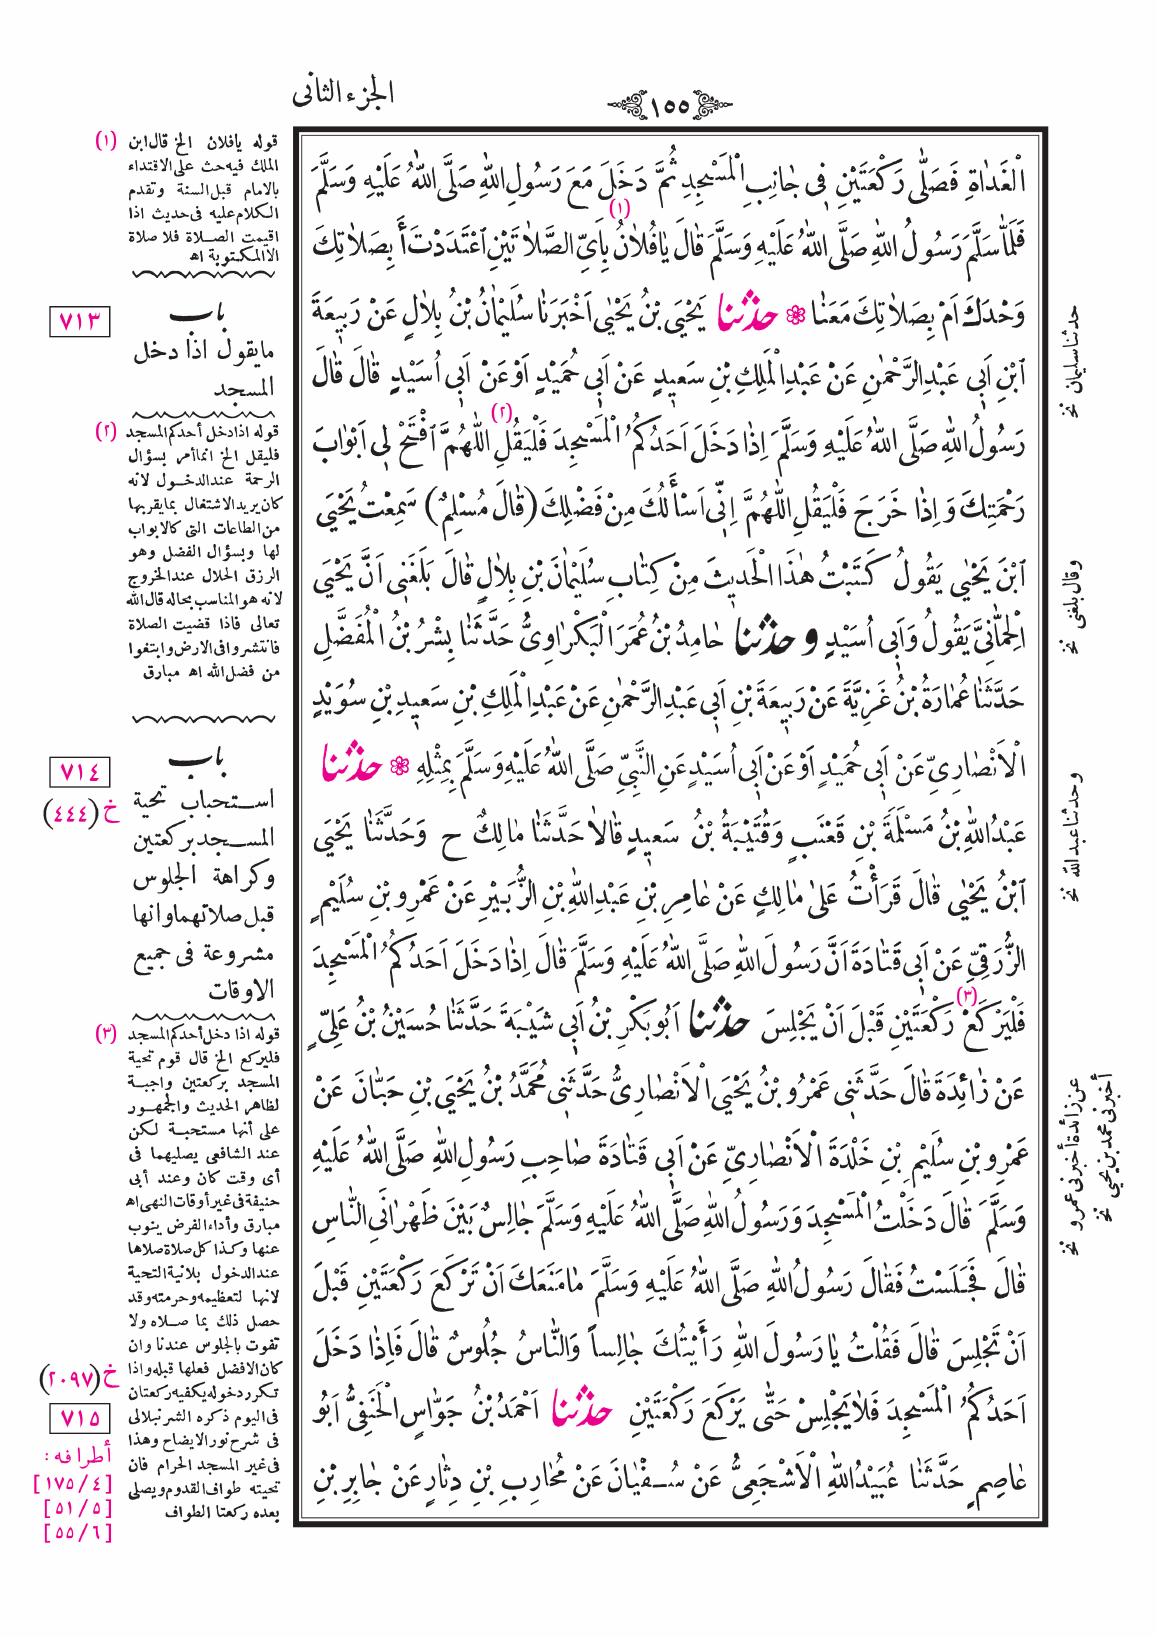 ١٥٥
الجزء الثانى
الْغَدَاةِ فَصَلّٰى رَكْعَتَيْنِ فِى جَانِبِ الْمَسْجِدِ ثُمَّ دَخَلَ مَعَ رَسُولِ اللّٰهِ صَلَّى اللّٰهُ عَلَيْهِ وَسَلَّمَ
فَلَمَّا سَلَّمَ رَسُولُ اللّٰهِ صَلَّى اللّٰهُ عَلَيْهِ وَسَلَّمَ قَالَ يَا فُلَانُ (١) بِاَيِّ الصَّلَاتَيْنِ اعْتَدَدْتَ أَ بِصَلَاتِكَ
وَحْدَكَ اَمْ بِصَلَاتِكَ مَعَنَا ❁ حدثنا يَحْيَى بْنُ يَحْيٰى اَخْبَرَنَا سُلَيْمَانُ بْنُ بِلَالٍ عَنْ رَبِيعَةَ
ابْنِ اَبِى عَبْدِ الرَّحْمٰنِ عَنْ عَبْدِ الْمَلِكِ بْنِ سَعِيدٍ عَنْ اَبِى حُمَيْدٍ اَوْ عَنْ اَبِى اُسَيْدٍ قَالَ قَالَ
رَسُولُ اللّٰهِ صَلَّى اللّٰهُ عَلَيْهِ وَسَلَّمَ اِذَا دَخَلَ اَحَدُكُمُ الْمَسْجِدَ فَلْيَقُلِ (٢) اللّٰهُمَّ افْتَحْ لِى اَبْوَابَ
رَحْمَتِكَ وَاِذَا خَرَجَ فَلْيَقُلِ اللّٰهُمَّ اِنِّى اَسْأَلُكَ مِنْ فَضْلِكَ (قَالَ مُسْلِمٌ) سَمِعْتُ يَحْيَى
ابْنَ يَحْيٰى يَقُولُ كَتَبْتُ هٰذَا الْحَدِيثَ مِنْ كِتَابِ سُلَيْمَانَ بْنِ بِلَالٍ قَالَ بَلَغَنِى اَنَّ يَحْيَى
الْحِمَّانِىَّ يَقُولُ وَاَبِى اُسَيْدٍ و حدثنا حَامِدُ بْنُ عُمَرَ الْبَكْرَاوِىُّ حَدَّثَنَا بِشْرُ بْنُ الْمُفَضَّلِ
حَدَّثَنَا عُمَارَةُ بْنُ غَزِيَّةَ عَنْ رَبِيعَةَ بْنِ اَبِى عَبْدِ الرَّحْمٰنِ عَنْ عَبْدِ الْمَلِكِ بْنِ سَعِيدِ بْنِ سُوَيْدٍ
الْاَنْصَارِىِّ عَنْ اَبِى حُمَيْدٍ اَوْ عَنْ اَبِى اُسَيْدٍ عَنِ النَّبِىِّ صَلَّى اللّٰهُ عَلَيْهِ وَسَلَّمَ بِمِثْلِهِ ❁ حدثنا
عَبْدُ اللّٰهِ بْنُ مَسْلَمَةَ بْنِ قَعْنَبٍ وَقُتَيْبَةُ بْنُ سَعِيدٍ قَالَا حَدَّثَنَا مَالِكٌ ح وَحَدَّثَنَا يَحْيَى
ابْنُ يَحْيٰى قَالَ قَرَأْتُ عَلٰى مَالِكٍ عَنْ عَامِرِ بْنِ عَبْدِ اللّٰهِ بْنِ الزُّبَيْرِ عَنْ عَمْرِو بْنِ سُلَيْمٍ
الزُّرَقِىِّ عَنْ اَبِى قَتَادَةَ اَنَّ رَسُولَ اللّٰهِ صَلَّى اللّٰهُ عَلَيْهِ وَسَلَّمَ قَالَ اِذَا دَخَلَ اَحَدُكُمُ الْمَسْجِدَ
فَلْيَرْكَعْ (٣) رَكْعَتَيْنِ قَبْلَ اَنْ يَجْلِسَ حدثنا اَبُو بَكْرِ بْنُ اَبِى شَيْبَةَ حَدَّثَنَا حُسَيْنُ بْنُ عَلِىٍّ
عَنْ زَائِدَةَ قَالَ حَدَّثَنِى عَمْرُو بْنُ يَحْيَى الْاَنْصَارِىُّ حَدَّثَنِى مُحَمَّدُ بْنُ يَحْيَى بْنِ حَبَّانَ عَنْ
عَمْرِو بْنِ سُلَيْمِ بْنِ خَلْدَةَ الْاَنْصَارِىِّ عَنْ اَبِى قَتَادَةَ صَاحِبِ رَسُولِ اللّٰهِ صَلَّى اللّٰهُ عَلَيْهِ
وَسَلَّمَ قَالَ دَخَلْتُ الْمَسْجِدَ وَرَسُولُ اللّٰهِ صَلَّى اللّٰهُ عَلَيْهِ وَسَلَّمَ جَالِسٌ بَيْنَ ظَهْرَانَىِ النَّاسِ
قَالَ فَجَلَسْتُ فَقَالَ رَسُولُ اللّٰهِ صَلَّى اللّٰهُ عَلَيْهِ وَسَلَّمَ مَا مَنَعَكَ اَنْ تَرْكَعَ رَكْعَتَيْنِ قَبْلَ
اَنْ تَجْلِسَ قَالَ فَقُلْتُ يَا رَسُولَ اللّٰهِ رَأَيْتُكَ جَالِساً وَالنَّاسُ جُلُوسٌ قَالَ فَاِذَا دَخَلَ
اَحَدُكُمُ الْمَسْجِدَ فَلَا يَجْلِسْ حَتّٰى يَرْكَعَ رَكْعَتَيْنِ حدثنا اَحْمَدُ بْنُ جَوَّاسٍ الْحَنَفِىُّ اَبُو
عَاصِمٍ حَدَّثَنَا عُبَيْدُ اللّٰهِ الْاَشْجَعِىُّ عَنْ سُفْيَانَ عَنْ مُحَارِبِ بْنِ دِثَارٍ عَنْ جَابِرِ بْنِ
حدثنا سليمان نخ
وقال بلغنى نخ
وحدثنا عبد الله نخ
عن زائدة أخبرنى عمرو نخ
أخبرنى محمد بن يحيى نخ
(١) قوله يافلان الخ قال ابن
الملك فيه حث على الاقتداء
بالامام قبل السنة وتقدم
الكلام عليه فى حديث اذا
اقيمت الصلاة فلا صلاة
الا المكتوبة اه
٧١٣
باب
مايقول اذا دخل
المسجد
(٢) قوله اذا دخل أحدكم المسجد
فليقل الخ انما أمر بسؤال
الرحمة عند الدخول لانه
كان يريد الاشتغال بما يقربها
من الطاعات التى كالابواب
لها وبسؤال الفضل وهو
الرزق الحلال عند الخروج
لانه هو المناسب بحاله قال الله
تعالى فاذا قضيت الصلاة
فانتشروا فى الارض وابتغوا
من فضل الله اه مبارق
٧١٤
خ (٤٤٤)
باب
استحباب تحية
المسجد بركعتين
وكراهة الجلوس
قبل صلاتهما وانها
مشروعة فى جميع
الاوقات
(٣) قوله اذا دخل أحدكم المسجد
فليركع الخ قال قوم تحية
المسجد بركعتين واجبة
لظاهر الحديث والجمهور
على أنها مستحبة لكن
عند الشافعى يصليهما فى
أى وقت كان وعند أبى
حنيفة فى غير أوقات النهى اه
مبارق وأداء الفرض ينوب
عنها وكذا كل صلاة صلاها
عند الدخول بلانية التحية
لانها لتعظيمه وحرمته وقد
حصل ذلك بما صلاه ولا
تفوت بالجلوس عندنا وان
كان الافضل فعلها قبله واذا
تكرر دخوله يكفيه ركعتان
فى اليوم ذكره الشرنبلالى
فى شرح نور الايضاح وهذا
فى غير المسجد الحرام فان
تحيته طواف القدوم ويصلى
بعده ركعتا الطواف
خ (٢٠٩٧)
٧١٥
أطرافه :
[١٧٥/٤]
[٥١/٥]
[٥٥/٦]